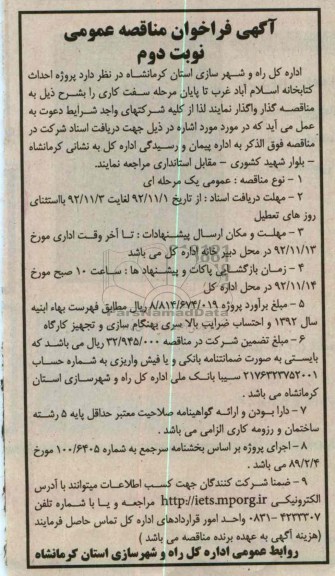 آگهی فراخوان مناقصه عمومی
نوبت دوم
اداره کل راه و شهر سازی استان کرمانشاه در نظر دارد پروژه احداث
کتابخانه اسلام آباد غرب تا پایان مرحله سفت کاری را بشرح ذیل به
مناقصه گذار واگذار نمایند لذا از کلیه شرکتهای واجد شرایط دعوت به
عمل می آید که در مورد مورد اشاره در ذیل جهت دریافت اسناد شرکت در
مناقصه فوق الذکر به اداره پیمان و رسیدگی اداره کل به نشانی کرمانشاه
– بلوار شهید کشوری – مقابل استانداری مراجعه نمایند.
۱ – نوع مناقصه : عمومی یک مرحله ای
۲ – مهلت دریافت اسناد : از تاریخ ۹۲/۱۱/۱ لغایت ۹۲/۱۱/۳ بااستثنای
روز های تعطیل
۳ – مهلت و مکان ارسال پیشنهادات : تا آخر وقت اداری مورخ
۹۲/۱۱/۱۳ در محل دبیرخانه اداره کل می باشد
۴ – زمان بازگشائی پاکات و پیشنهاد ها : ساعت ۱۰ صبح مورخ
۹۲/۱۱/۱۴ در محل اداره کل
۵ – مبلغ برآورد پروژه ۸/۸۱۴/۶۷۴/۰۱۹ ریال مطابق فهرست بهاء ابنیه
سال ۱۳۹۲ و احتساب ضرایب بالا سری بهنگام سازی و تجهیز کارگاه
۶ – مبلغ تضمین شرکت در مناقصه ۳۲/۹۴۵/۰۰۰ ریال می باشد که
بایستی به صورت ضمانتنامه بانکی و یا فیش واریزی به شماره حساب
۲۱۷۶۳۲۳۷۵۲۰۰۱ سیبا بانک ملی اداره کل راه و شهرسازی استان
کرمانشاه می باشد .
۷ – دارا بودن و ارائه گواهینامه صلاحیت معتبر حداقل پایه ۵ رشته
ساختمان و رزومه کاری الزامی می باشد .
۸ – اجرای پروژه بر اساس بخشنامه سرجمع به شماره ۱۰۰/۶۴۰۵ مورخ
۸۹/۲/۴ می باشد .
۹ – ضمنا شرکت کنندگان جهت کسب اطلاعات میتوانند با آدرس
الکترونیکی http://iets.mporg.ir مراجعه و یا با شماره تلفن
۴۲۳۳۳۰۷–۰۸۳۱ واحد امور قراردادهای اداره کل تماس حاصل فرمایند
(هزینه آگهی به عهده برنده مناقصه می باشد )
روابط عمومی اداره کل راه و شهرسازی استان کرمانشاه